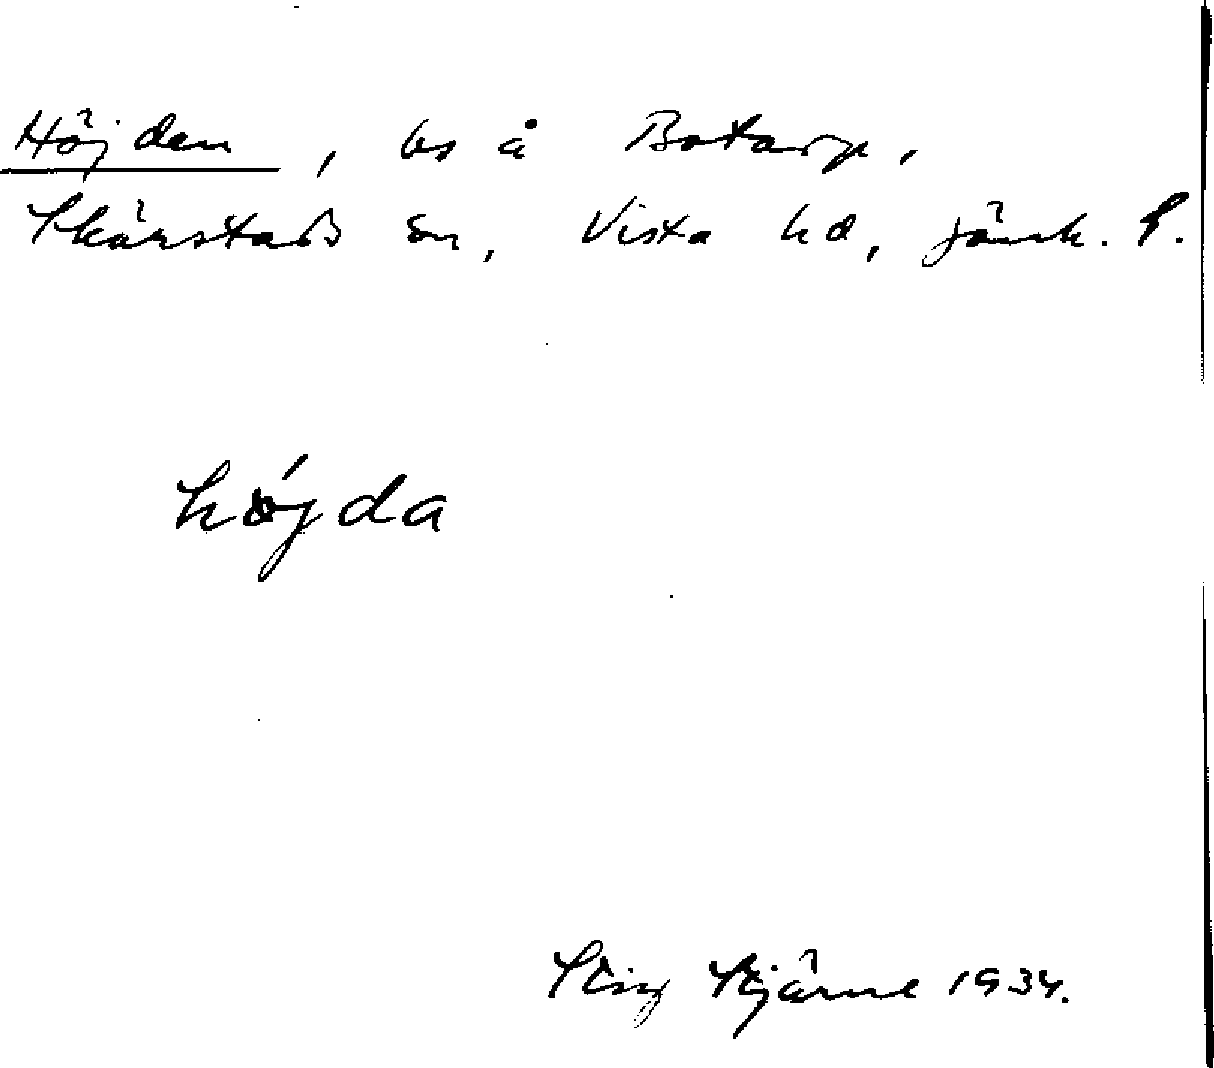 Höjden, bs å Botarp,
Skärstads sn, Vista hd, Jönk. l.
höjda
Stig Stjärne 1934.